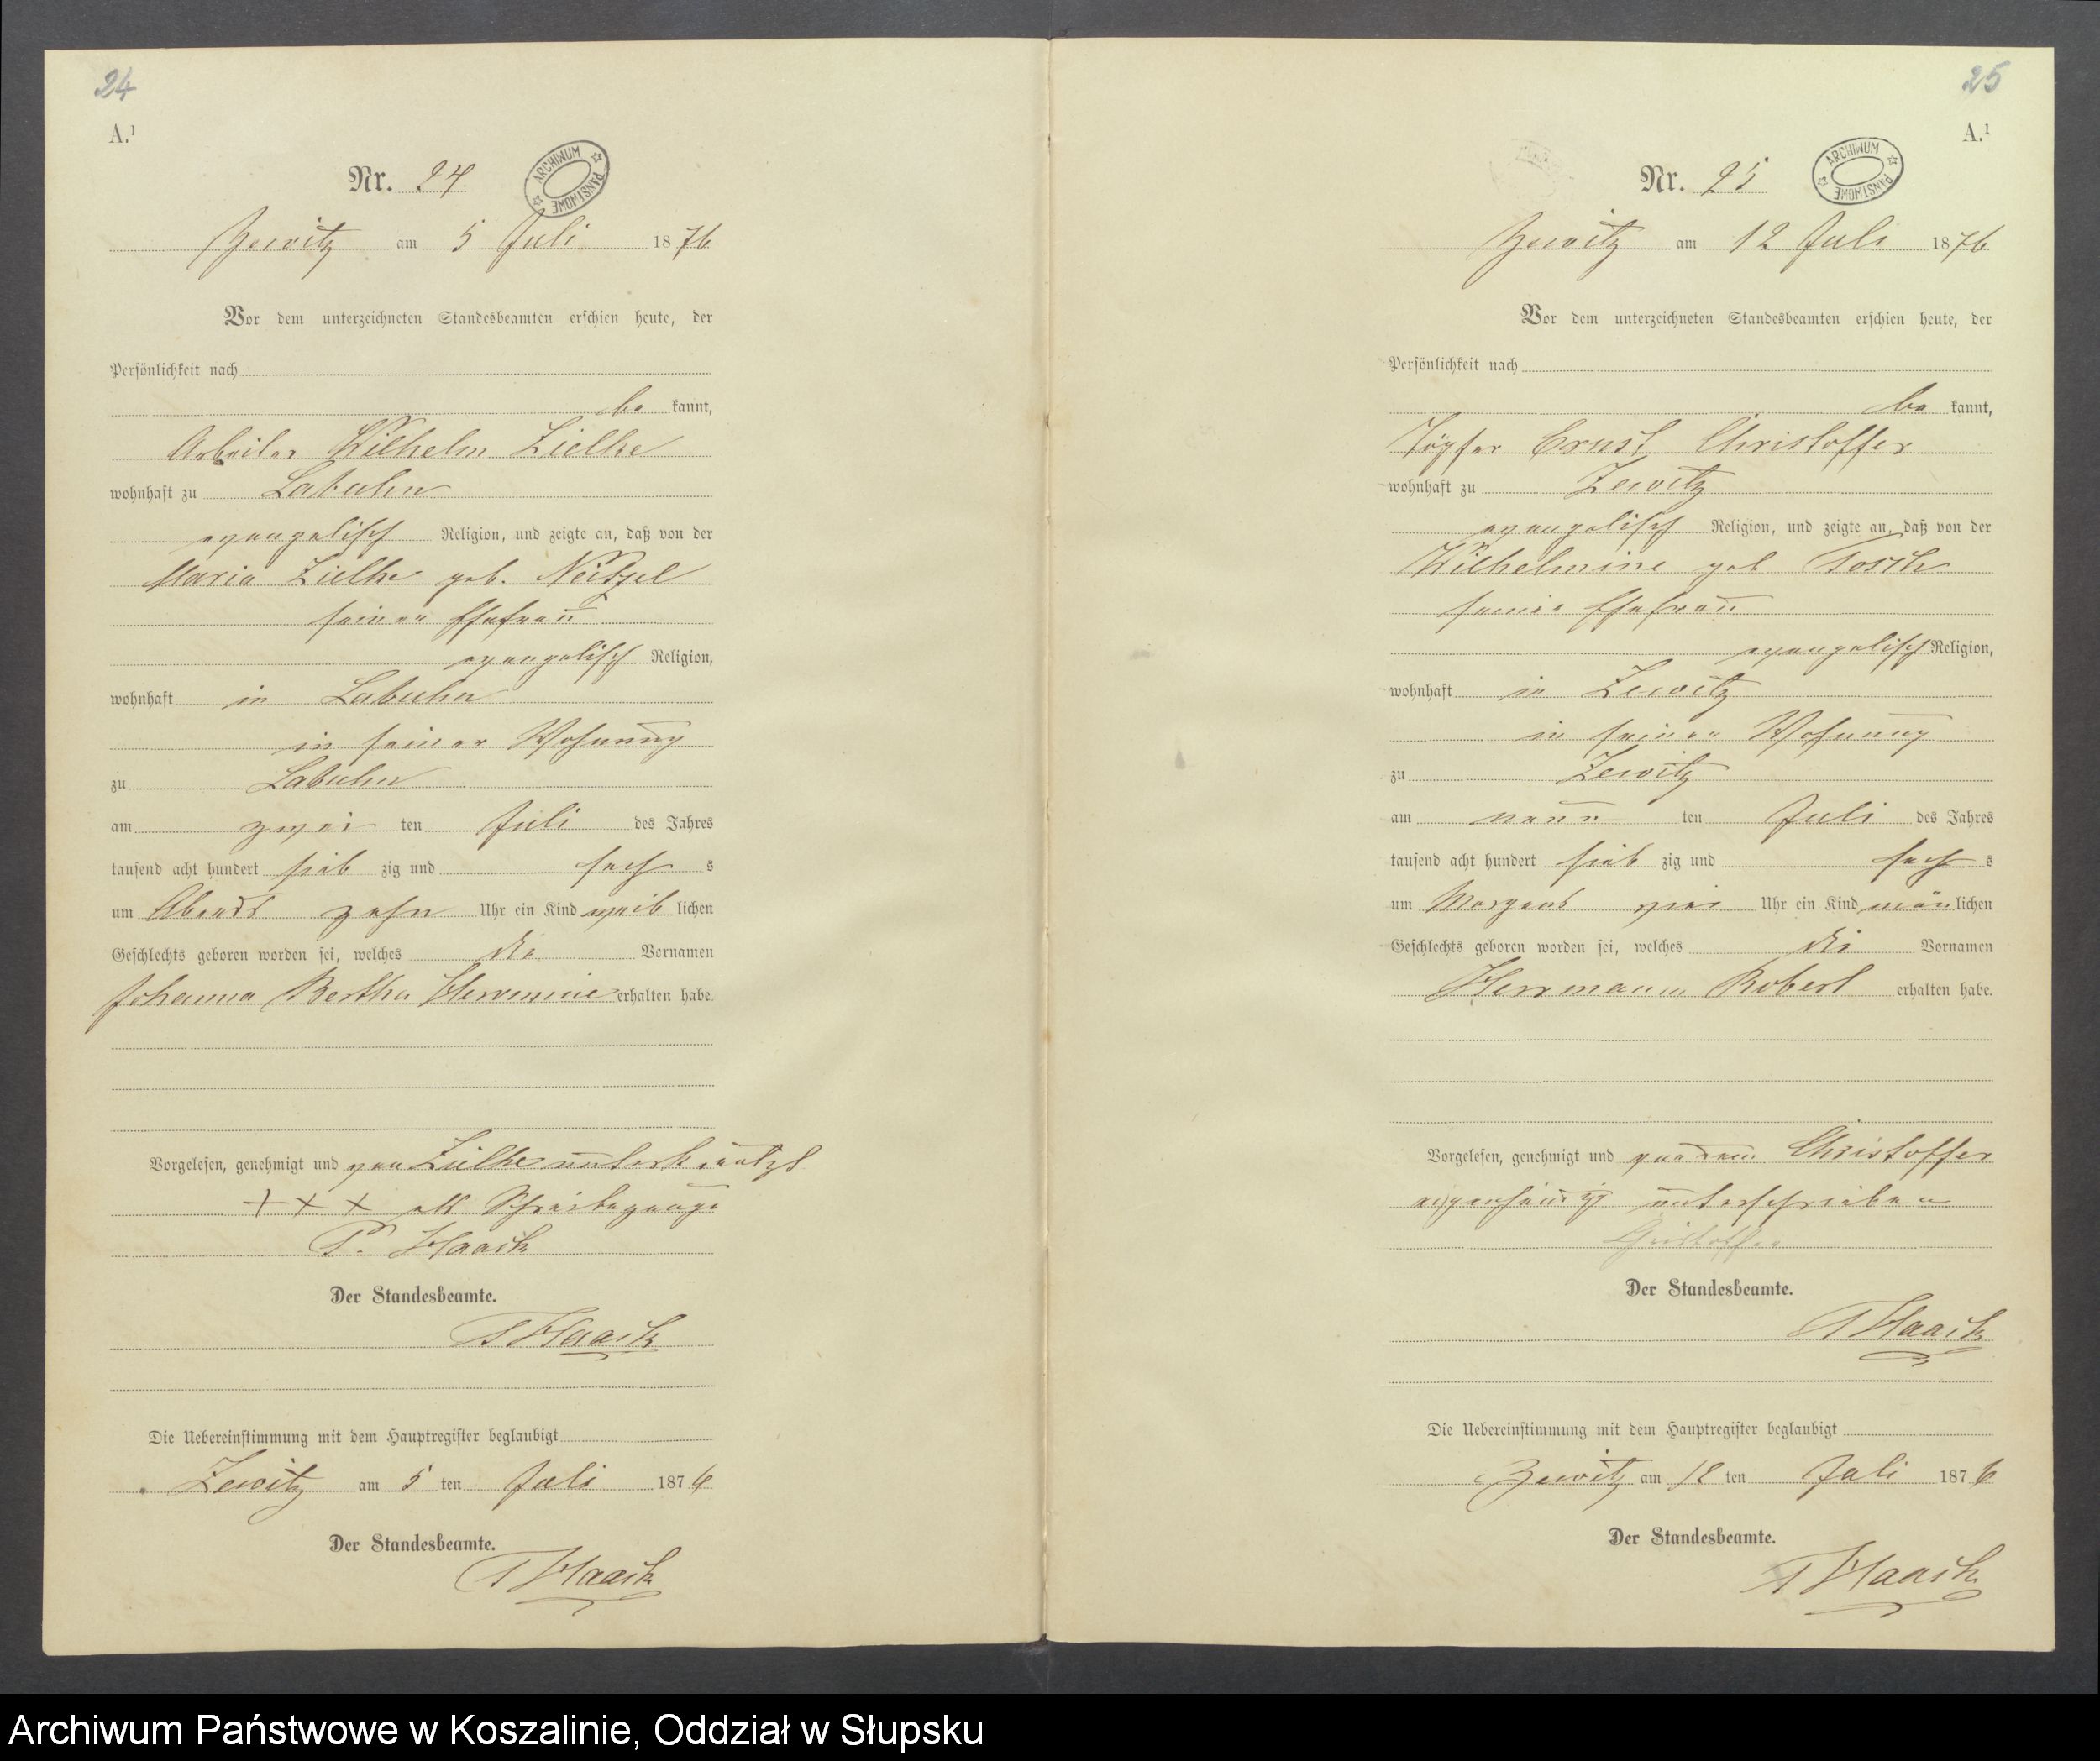 24
A.¹
Nr. 24
ARCHIWUM PAŃSTWOWE
Zewitz am 5 Juli 1876
Vor dem unterzeichneten Standesbeamten erschien heute, der
Persönlichkeit nach
be kannt,
Arbeiter Wilhelm Zielke
wohnhaft zu Labuhn
evangelisch Religion, und zeigte an, daß von der
Maria Zielke geb. Neitzel
seiner Ehefrau
evangelisch Religion,
wohnhaft in Labuhn
in seiner Wohnung
zu Labuhn
am zwei ten Juli des Jahres
tausend acht hundert sieb zig und sech s
um Abends zehn Uhr ein Kind weib lichen
Geschlechts geboren worden sei, welches die Vornamen
Johanna Bertha Hermine erhalten habe.
Vorgelesen, genehmigt und von Zielke unterkreutzt
+ + + als Schreibezeuge
P. Haack
Der Standesbeamte.
P Haack
Die Uebereinstimmung mit dem Hauptregister beglaubigt
Zewitz am 5 ten Juli 1876
Der Standesbeamte.
P Haack
25
A.¹
Nr. 25
ARCHIWUM PAŃSTWOWE
Zewitz am 12 Juli 1876
Vor dem unterzeichneten Standesbeamten erschien heute, der
Persönlichkeit nach
be kannt,
Töpfer Ernst Christoffer
wohnhaft zu Zewitz
evangelisch Religion, und zeigte an, daß von der
Wilhelmine geb
seiner Ehefrau
evangelisch Religion,
wohnhaft in Zewitz
in seiner Wohnung
zu Zewitz
am neun ten Juli des Jahres
tausend acht hundert sieb zig und sech s
um Morgens vier Uhr ein Kind män lichen
Geschlechts geboren worden sei, welches die Vornamen
Herrmann Robert erhalten habe.
Vorgelesen, genehmigt und von dem Christoffer
eigenhändig unterschrieben
Christoffer
Der Standesbeamte.
P Haack
Die Uebereinstimmung mit dem Hauptregister beglaubigt
Zewitz am 12 ten Juli 1876
Der Standesbeamte.
P Haack
Archiwum Państwowe w Koszalinie, Oddział w Słupsku